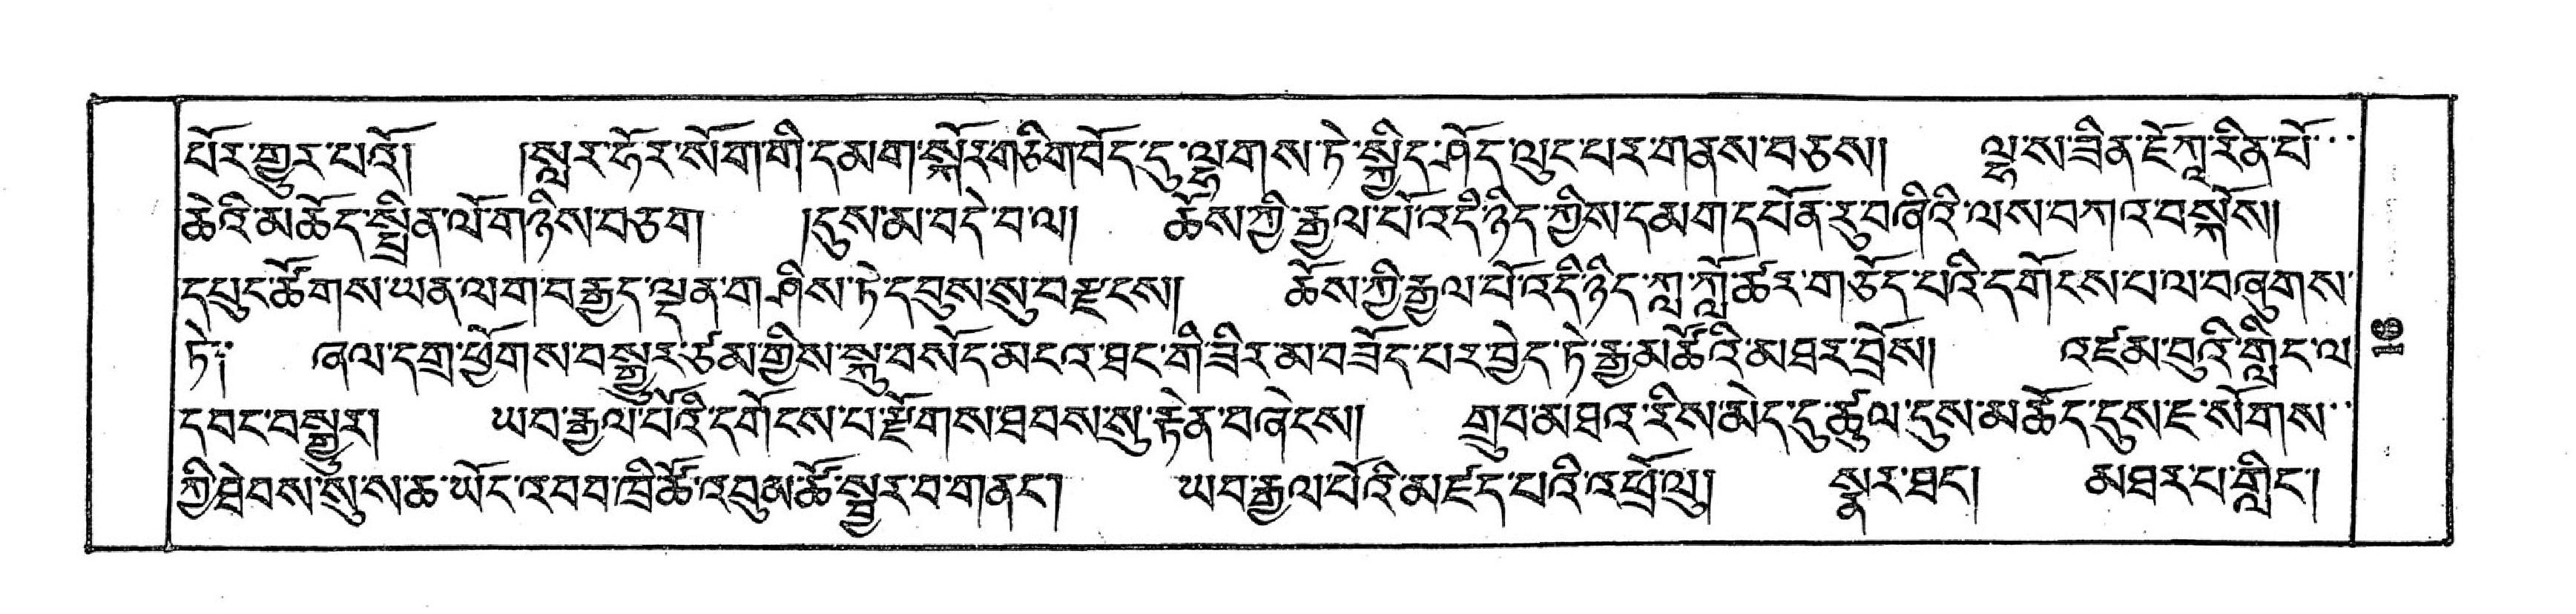 པོར་གྱུར་པའོ། །སླར་ཧོར་སོག་གི་དམག་སྐོར་གཅིག་བོད་དུ་ལྷགས་ཏེ་སྐྱིད་ཤོད་ལུང་པར་གནས་བཅས། ལྷས་ཟིན་ཇོ་ཀླ་རིན་པོ་་་
ཆེའི་མཆོད་སྤྲིན་ལོ་གཉིས་བཅག །དུས་མ་བདེ་བ་ལ། ཆོས་ཀྱི་རྒྱལ་པོ་འདི་ཉིད་ཀྱིས་དམག་དཔོན་རུ་བཞིའི་ལས་བཀའ་བསྐོས།
དཔུང་ཚོགས་ཡན་ལག་བརྒྱད་ལྡན་གཤིས་ཏེ་དབུས་སུ་བརྫངས། ཆོས་ཀྱི་རྒྱལ་པོ་འདི་ཉིད་ཀླ་ཀློ་ཚར་གཅོད་པའི་དགོངས་པ་ལ་བཞུགས་
ཏེ། ཞལ་དགྲ་ཕྱོགས་བསྒྱུར་ཙམ་གྱིས་སྐུ་བསོད་མངའ་ཐང་གི་ཟིར་མ་བཟོད་པར་བྱེད་ཏེ་རྒྱ་མཚོའི་མཐར་བྲོས། འཛམ་བུའི་གླིང་ལ ༡༠
དབང་བསྒྱུར། ཡབ་རྒྱལ་པོའི་དགོངས་པ་རྫོགས་ཐབས་སུ་རྟེན་བཞེངས། གྲུབ་མཐའ་རིས་མེད་དུ་ཚུལ་དུས་མཆོད་དུས་ཇ་སོགས་་
ཀྱི་ཐེབས་སུ་ས་ཆ་ཡོང་འབབ་ཁྲི་ཚོ་འབུམ་ཚོ་སྦྱར་བ་གནང། ཡབ་རྒྱལ་པོའི་མཛད་པའི་འཕྲོ་ལུ། སྣར་ཐང། མཐར་པ་གླིང་།